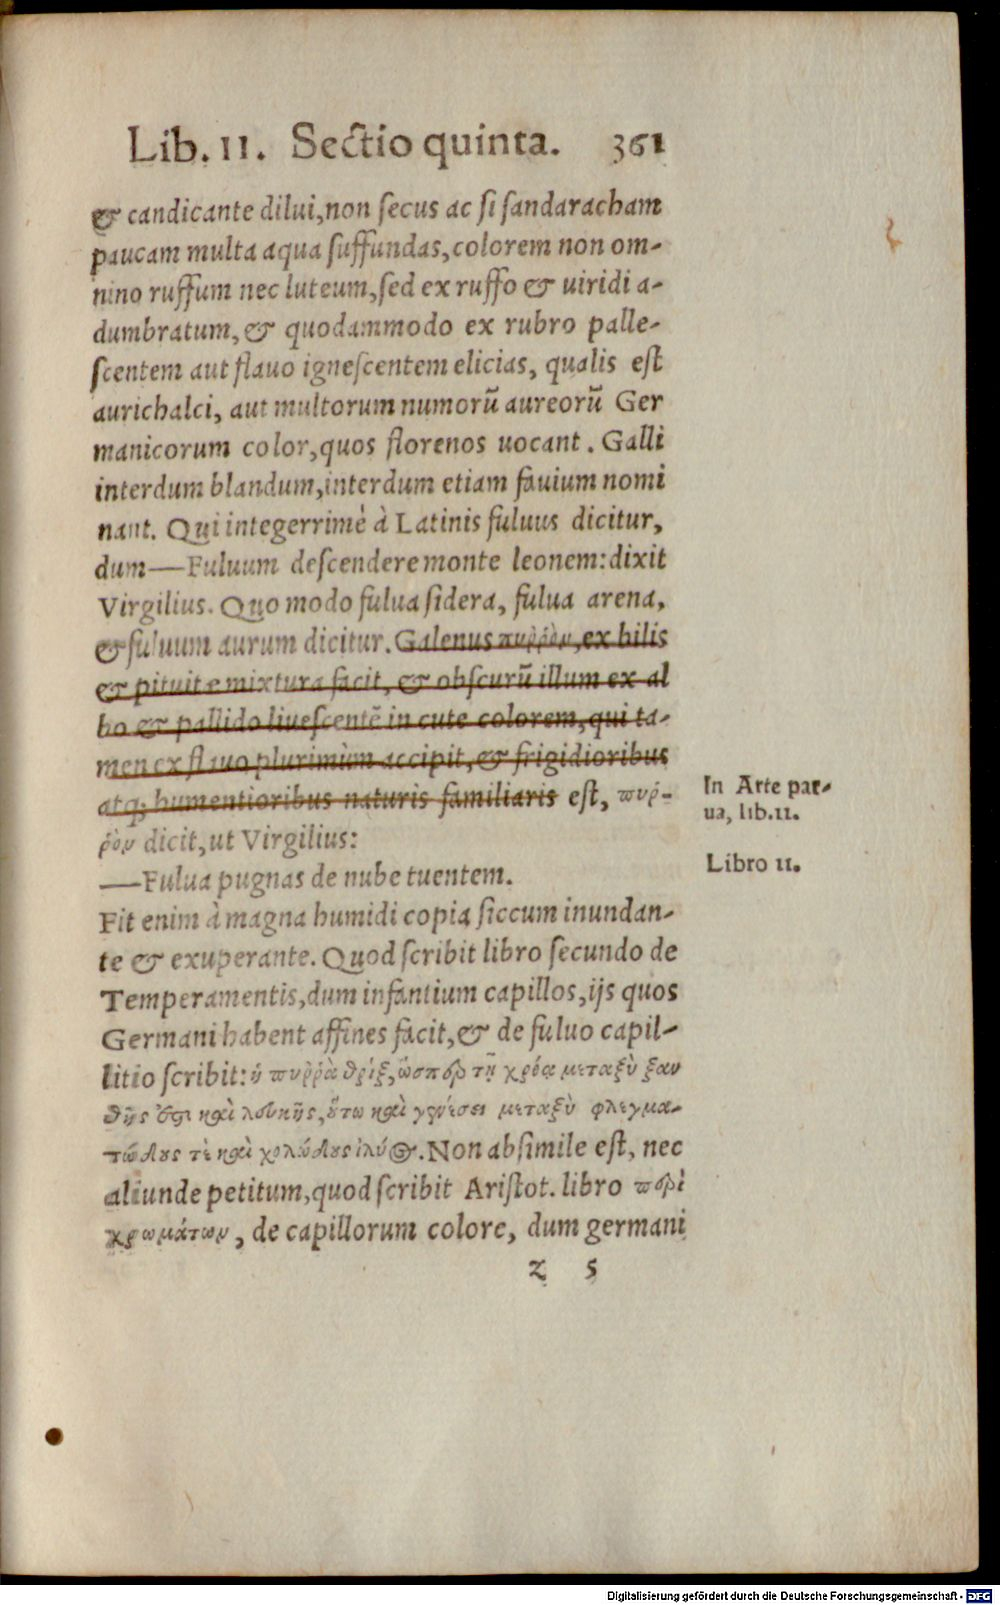 Lib. II. Sectio quinta. 361
& candicante dilui, non secus ac si sandaracham
paucam multa aqua suffundas, colorem non om-
nino ruffum nec luteum, sed ex ruffo & uiridi a-
dumbratum, & quodammodo ex rubro palle-
scentem aut flauo ignescentem elicias, qualis est
aurichalci, aut multorum numorū aureorū Ger
manicorum color, quos florenos uocant. Galli
interdum blandum, interdum etiam fauium nomi
nant. Qui integerrimè à Latinis fuluus dicitur,
dum—Fuluum descendere monte leonem: dixit
Virgilius. Quo modo fulua sidera, fulua arena,
& fuluum aurum dicitur. Galenus πυῤῥὸν, ex bilis
& pituitæ mixtura facit, & obscurū illum ex al
bo & pallido liuescentē in cute colorem, qui ta-
men ex flauo plurimùm accipit, & frigidioribus
atq; humentioribus naturis familiaris est, πυῤ-
ῥὸν dicit, ut Virgilius:
—Fulua pugnas de nube tuentem.
Fit enim à magna humidi copia siccum inundan-
te & exuperante. Quod scribit libro secundo de
Temperamentis, dum infantium capillos, ijs quos
Germani habent affines facit, & de fuluo capil-
litio scribit: ἡ πυῤῥὰ θρὶξ, ὥσπερ τῇ χρόᾳ μεταξὺ ξαν
θῆς ἐστι καὶ λευκῆς, οὕτω καὶ γενέσει μεταξὺ φλεγμα-
τώδους τὲ καὶ χολώδους ἰλύος. Non absimile est, nec
aliunde petitum, quod scribit Aristot. libro περὶ
χρωμάτων, de capillorum colore, dum germani
z 5
In Arte par-
ua, lib. II.
Libro II.
Digitalisierung gefördert durch die Deutsche Forschungsgemeinschaft - DFG